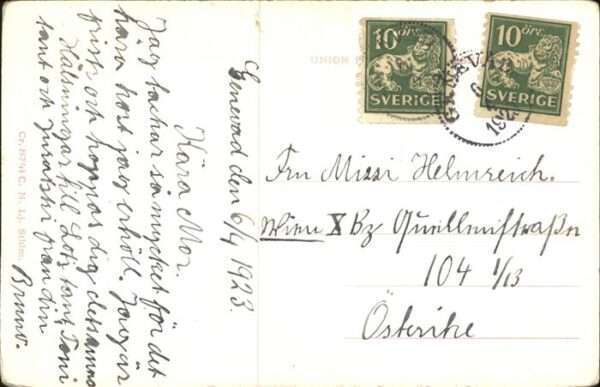 Genevad den 6/4 1923.
Kära Mor.
Jag tackar så mycket för det
kära kort jag erhöll. Jag är
frisk och hoppas dig detsamma
Hälsningar till Lotz tant Toni
tant och från din
Bruno.
Cr. N. Lj. Sthlm.
UNION
10 öre
SVERIGE
10 öre
SVERIGE
GENEVAD
Frn Missi Helmreich.
Wien X Bz Quellenstraße
104 1/13
Österike